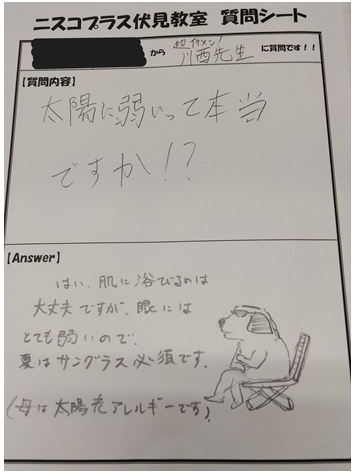 ニスコプラス伏見教室 質問シート
から 超イケメン!
川西先生 に質問です！！
【質問内容】
太陽に弱いって本当
ですか!?
【Answer】
はい、肌に浴びるのは
大丈夫ですが、眼には
とても弱いので、
夏はサングラス必須です。
(母は太陽光アレルギーです)